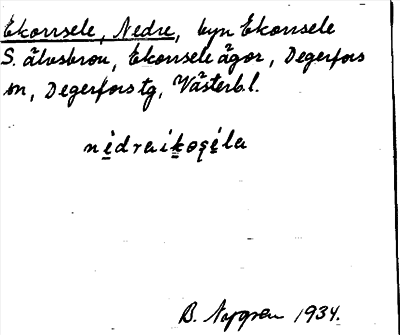 Ekorrsele, Nedre, byn Ekorrsele
S. älvsbron, Ekorrsele ägor, Degerfors
sn, Degerfors tg, Västerb. l.
nedraikoșéla
B. 1934.